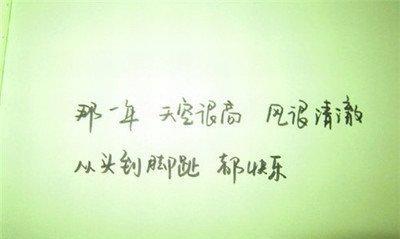 那一年 天空很高 风很清澈
从头到脚趾 都快乐